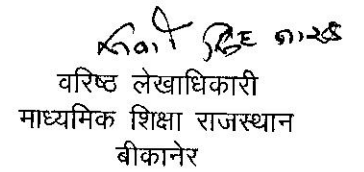 वरिष्ठ लेखाधिकारी
माध्यमिक शिक्षा राजस्थान
बीकानेर